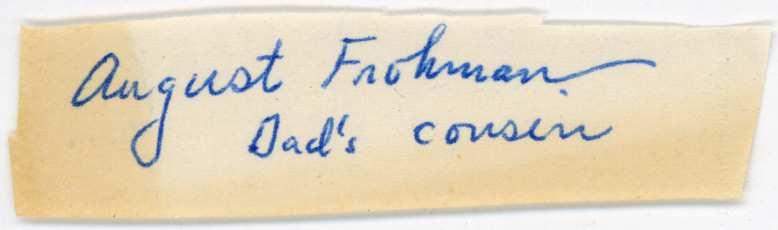 August Frohman
Dad's cousin